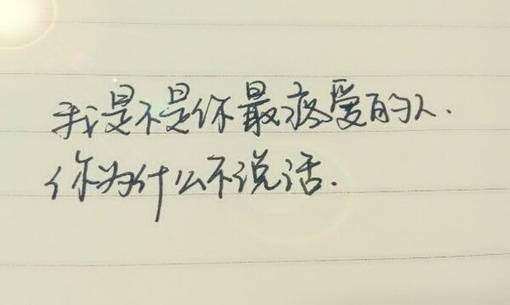 我是不是你最疼爱的人.
你为什么不说话.